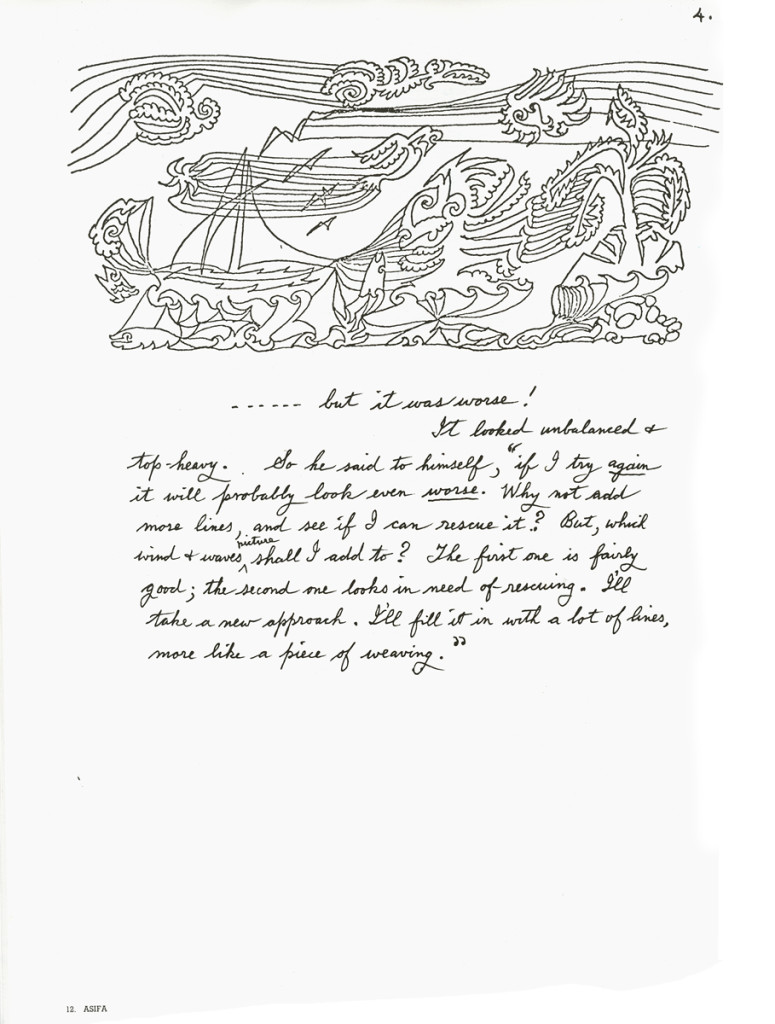 4.
------ but it was worse!
It looked unbalanced &
top-heavy. . So he said to himself, "if I try again
it will probably look even worse. Why not add
more lines, and see if I can rescue it? But, which
wind & waves picture shall I add to? The first one is fairly
good; the second one looks in need of rescuing. I'll
take a new approach. I'll fill it in with a lot of lines,
more like a piece of weaving."
12. ASIFA